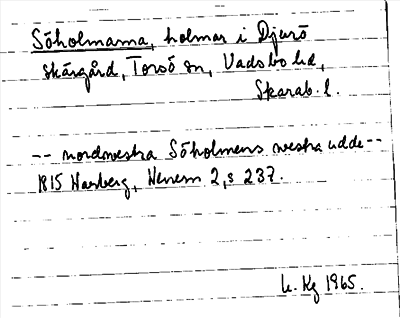 Söholmarna, holmar i Djurö
skärgård, Torsö sn, Vadsbo hd,
Skarab. l.
-- nordwestra Söholmens westra udde --
1815 Warberg, Wenern 2, s 237.
L. Kg 1965.